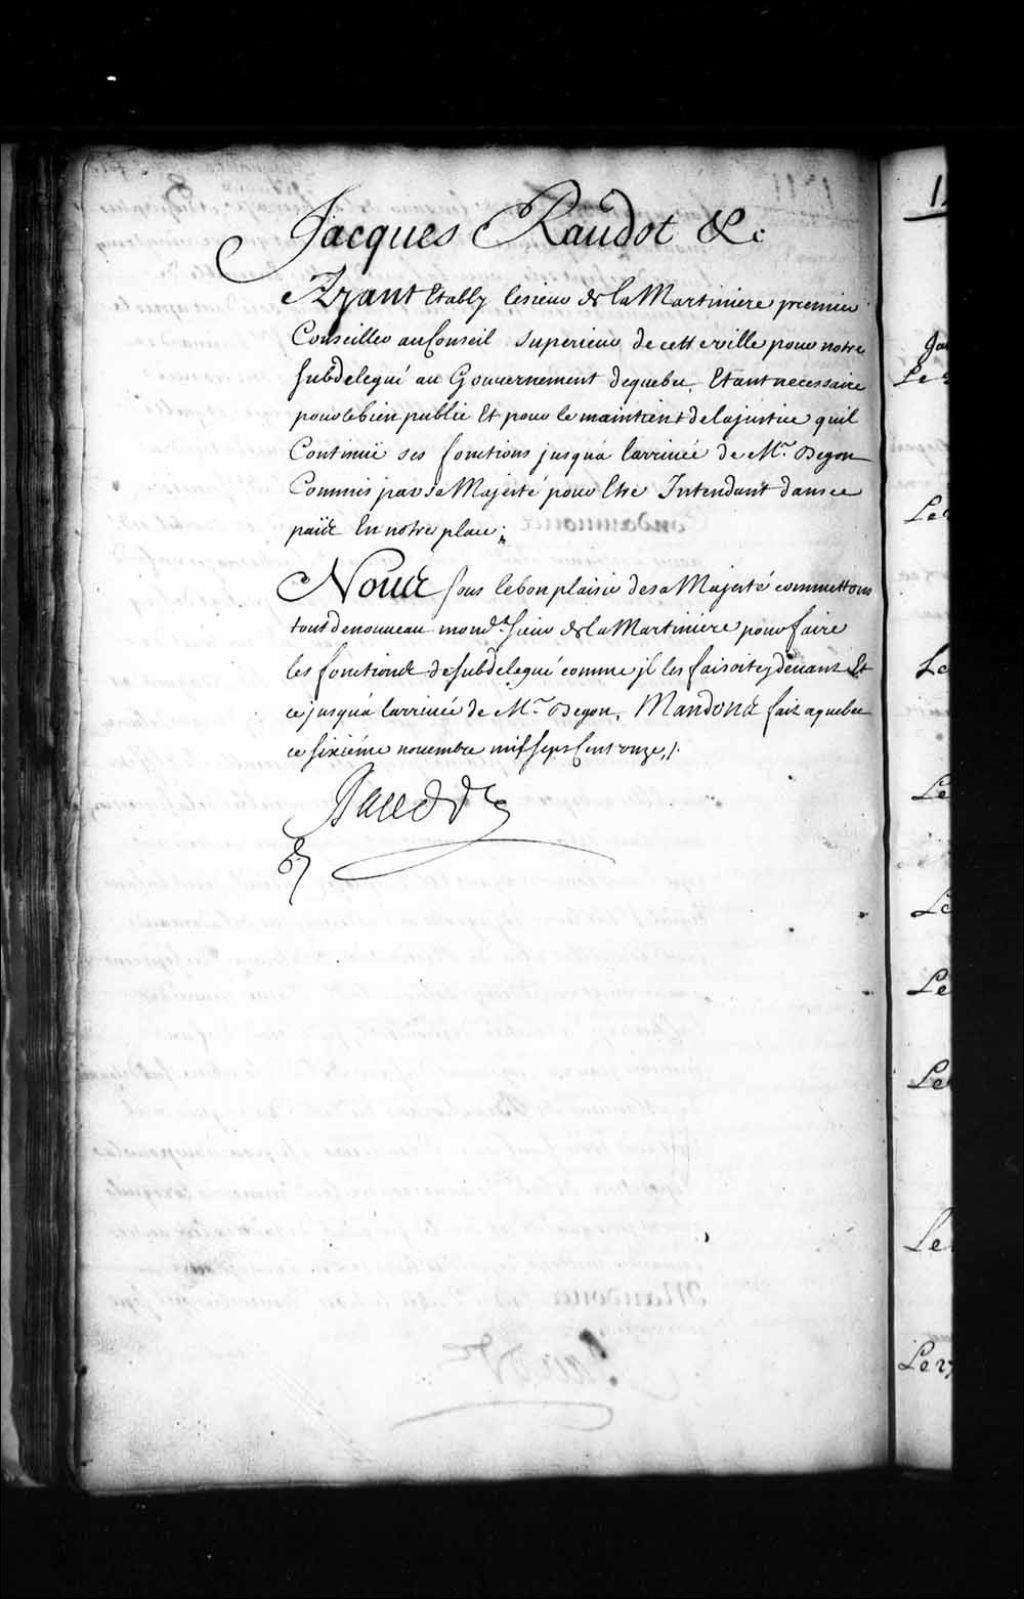 Jacques Raudot &c
Ayant Etably lesieur de la Martiniere premier
Conseiller au Conseil Superieur de cette ville pour notre
subdelegué au Gouuernement dequebec, Etant necessaire
pour lebien public Et pour le maintient delajustice quil
Continuë ses fonctions jusqua larriuée de Mr. Begon
Commis par sa Majesté pour Etre Intendant dansce
païs En notre place;
Nous sous lebon plaisir desa Majesté commettons
tout denouueau mond.t sieur de la Martiniere pour faire
les fonctions de subdelegué comme jl les faisoit cydeuant Et
ce jusqua larriuée de Mr. Begon, Mandons fait aquebec
ce sixiéme nouembre mil sept cent onze, /.
Raudot
Le
Le
Le
Le
Le
Le
Le
Le
Le